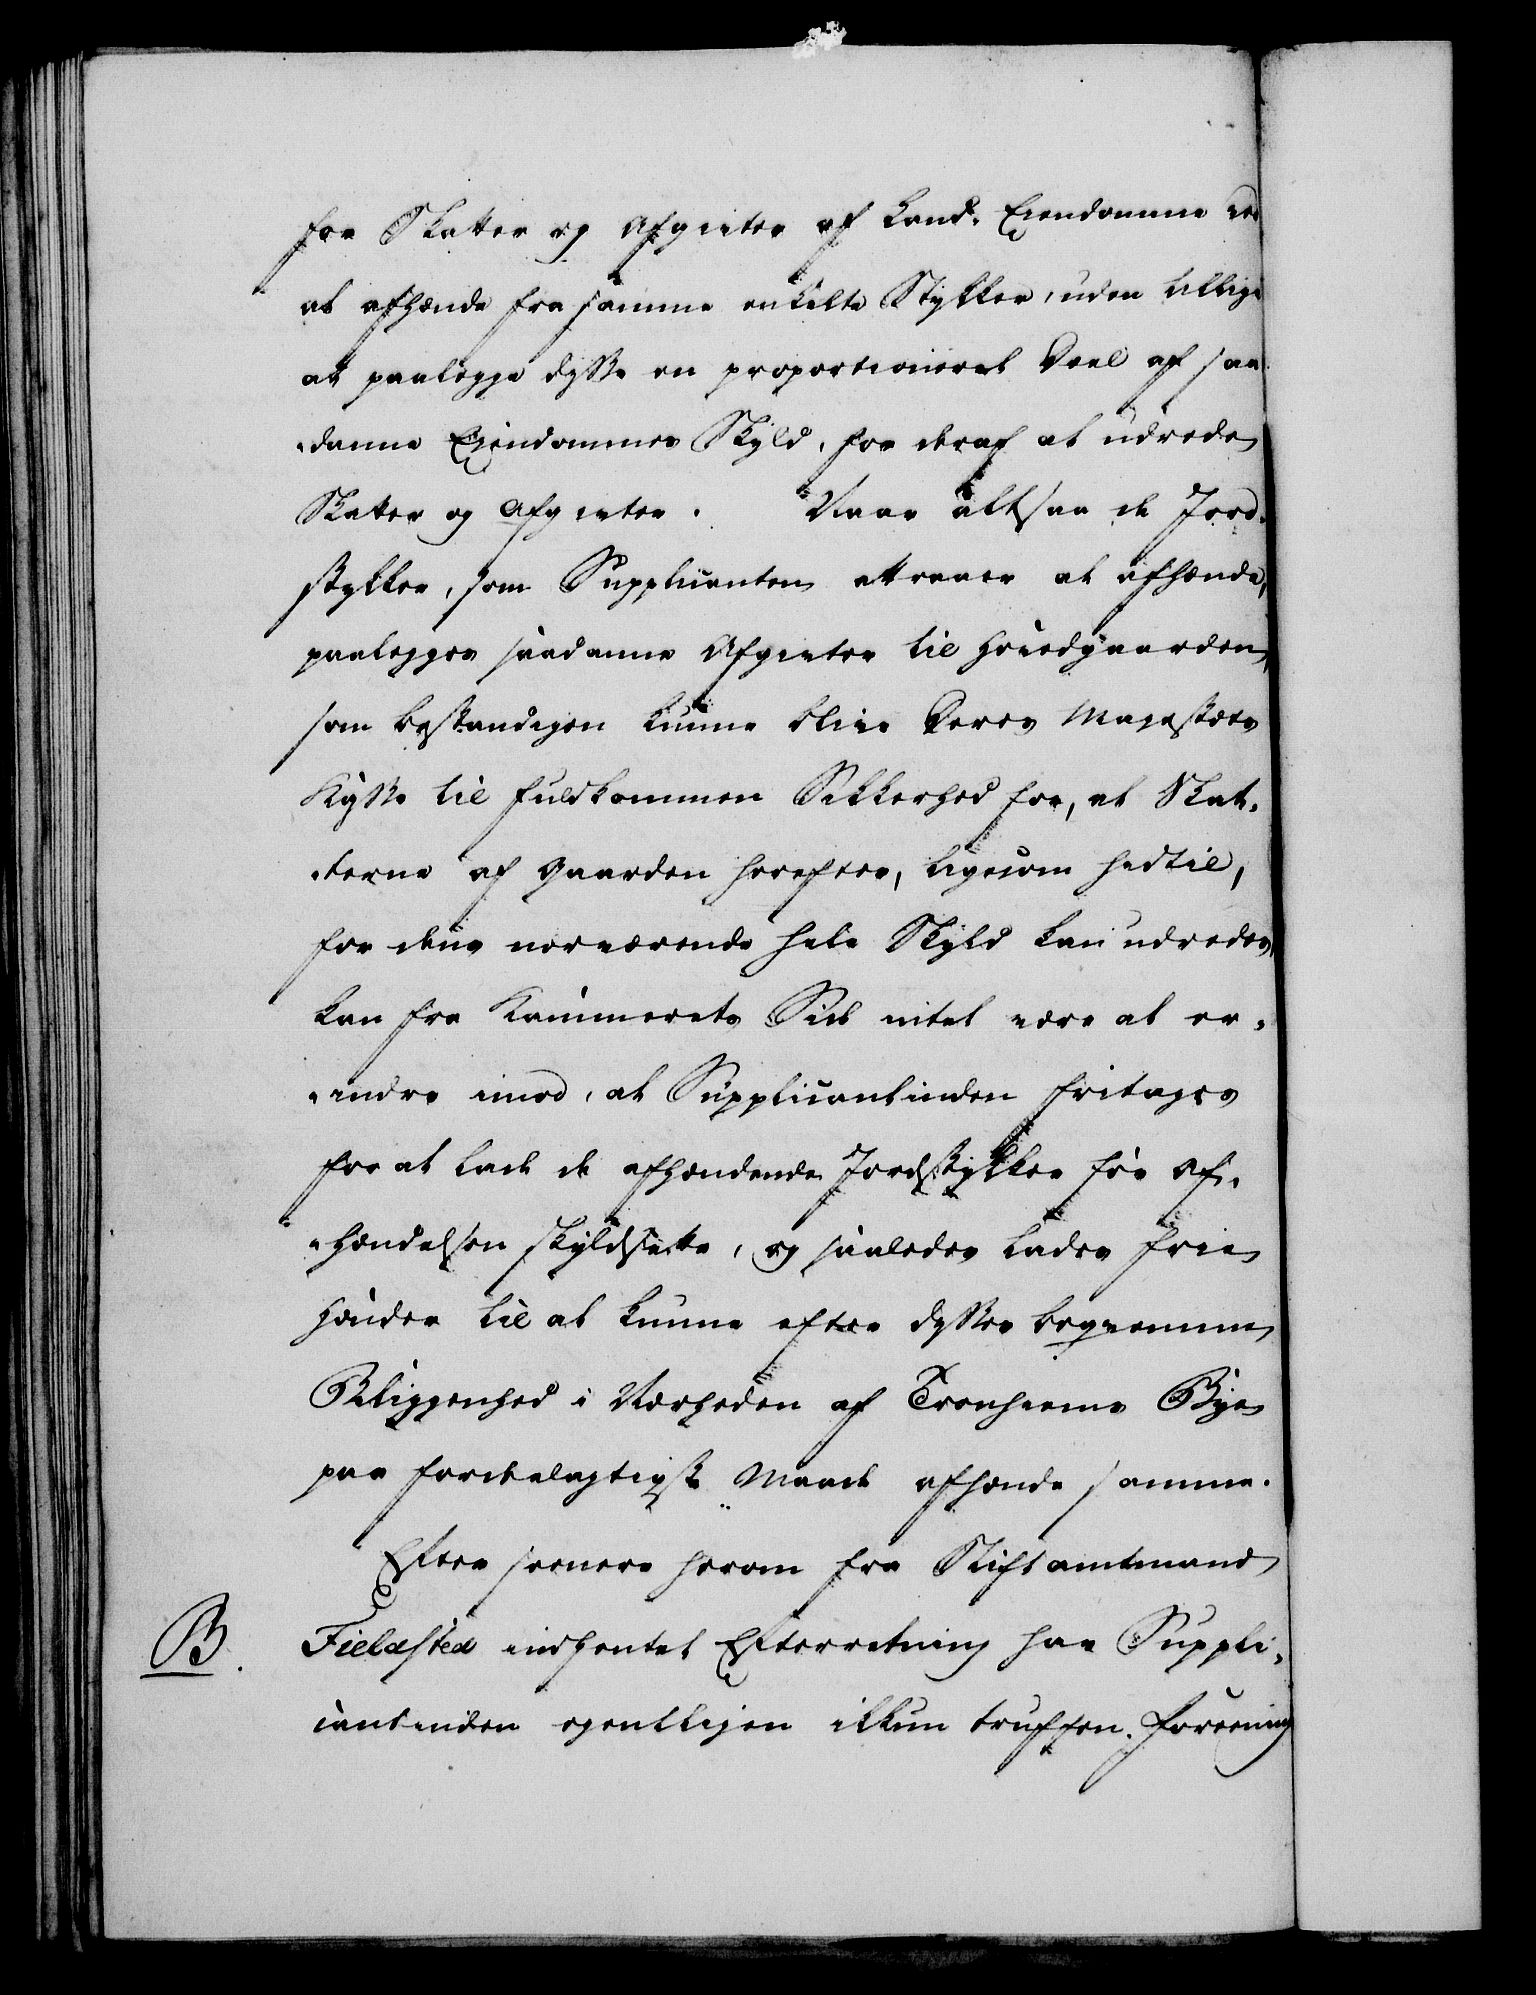 for Skatter og Afgivter af Land-Eiendomme ved
at afhænde fra samme enkelte Stykker, uden tillige
at paalægge disse en proportioneret Deel af saa
-danne Eiendommes Skyld, for deraf at udrede
Skatter og Afgivter. Naar altsaa de Jord-
stykker, som Supplicanten attraaer at afhænde,
paalægges saadanne Afgivter til Hovedgaarden,
som bestandigen kunne blive Deres Majestæts
Kasse til fuldkommen Sikkerhed for, at Skat-
-terne af Gaarden herefter, ligesom hidtil,
for dens nærværende hele Skyld kan udredes,
kan fra Kammerets Side intet være at er-
-indre imod, at Supplicantinden fritages
for at lade de afhændende Jordstykker før Af-
-hændelsen skyldsætte, og saaledes lades frie
Hænder til at kunne efter disses beqvemme
Beliggenhed i Nærheden af Tronhiems Bye
paa fordelagtigste Maade afhænde samme.
Efter senere herom fra Stiftamtmand
B. Fieldsted indhentet Efterretning har Suppli-
cantinden egentligen ikkun truffen Foreening